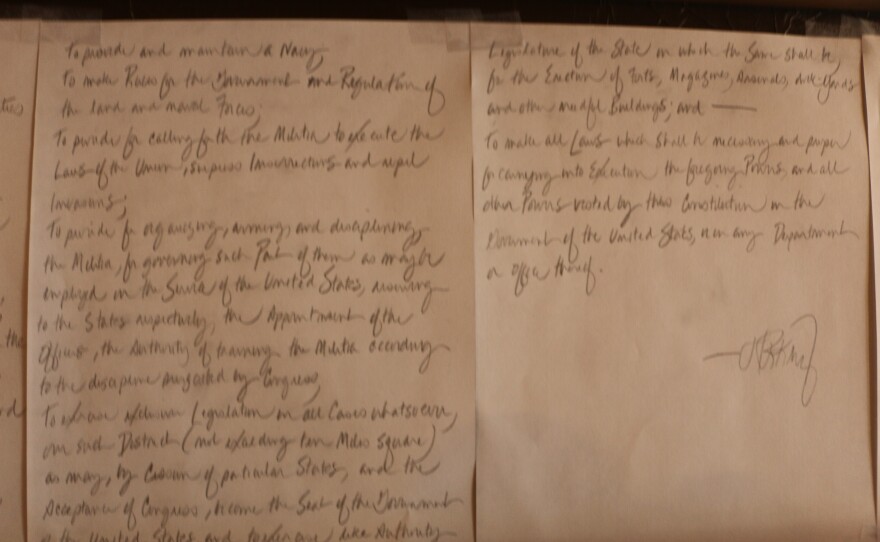 To provide and maintain a Navy;
To make Rules for the Government and Regulation of
the land and naval Forces;
To provide for calling forth the Militia to execute the
Laws of the Union, suppress Insurrections and repel
Invasions;
To provide for organizing, arming, and disciplining,
the Militia, for governing such Part of them as may be
employed in the Service of the United States, reserving
to the States respectively, the Appointment of the
Officers, the Authority of training the Militia according
to the discipline prescribed by Congress;
To exercise exclusive Legislation in all Cases whatsoever,
over such District (not exceeding ten Miles square)
as may, by Cession of particular States, and the
Acceptance of Congress, become the Seat of the Government
of the United States, and to exercise like Authority
Legislature of the State in which the Same shall be,
for the Erection of Forts, Magazines, Arsenals, dock-Yards
and other needful Buildings; and —
To make all Laws which shall be necessary and proper
for carrying into Execution the foregoing Powers, and all
other Powers vested by this Constitution in the
Government of the United States, or in any Department
or Office thereof.
the